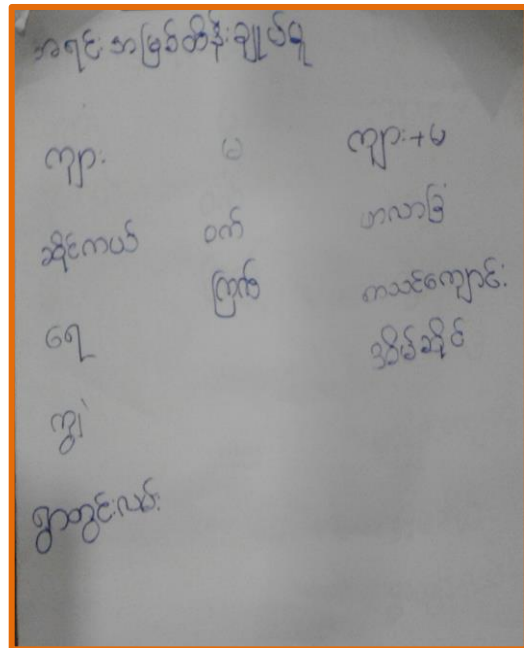 အရင်းအမြစ်ထိန်းချုပ်မှု
ကျား မ ကျား+မ
ဆိုင်ကယ် ဝက် ဟာလာခြံ
ကြက် စာသင်ကျောင်း
ရေ အိမ်ဆိုင်
ကျွဲ
ရွာတွင်းလမ်း